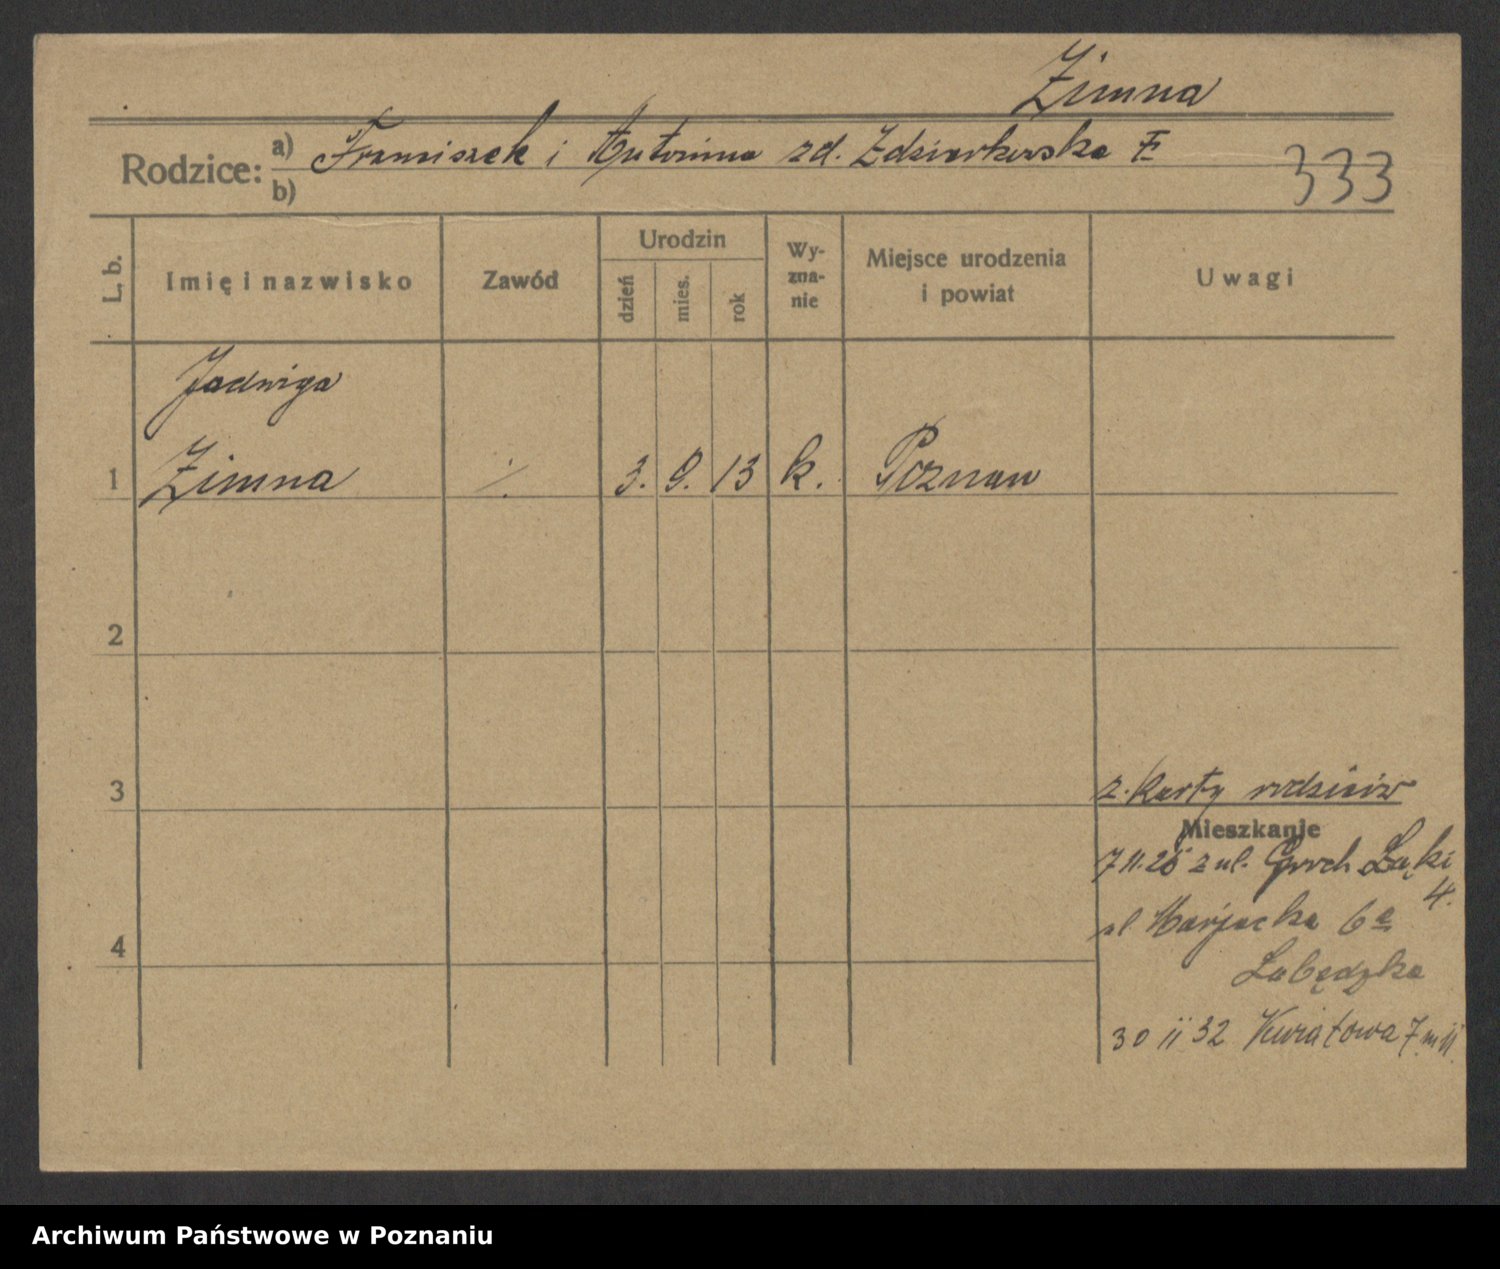 Zimna
Rodzice:
a) Franciszek i Antonina zd. Zdziarkowska
b)
333
L. b.
Imię i nazwisko
Zawód
Urodzin
dzień
mies.
rok
Wy-
zna-
nie
Miejsce urodzenia
i powiat
Uwagi
Jadwiga
1 Zimna ·/. 3. 9. 13 k. Poznań
2
3
z. karty rodziców
Mieszkanie
7 11. 26 z ul. Groch Łąki
4.
Marjacka 6a
4
Labędzka
30 ii 32 Kwiatowa 7. m 11.
Archiwum Państwowe w Poznaniu